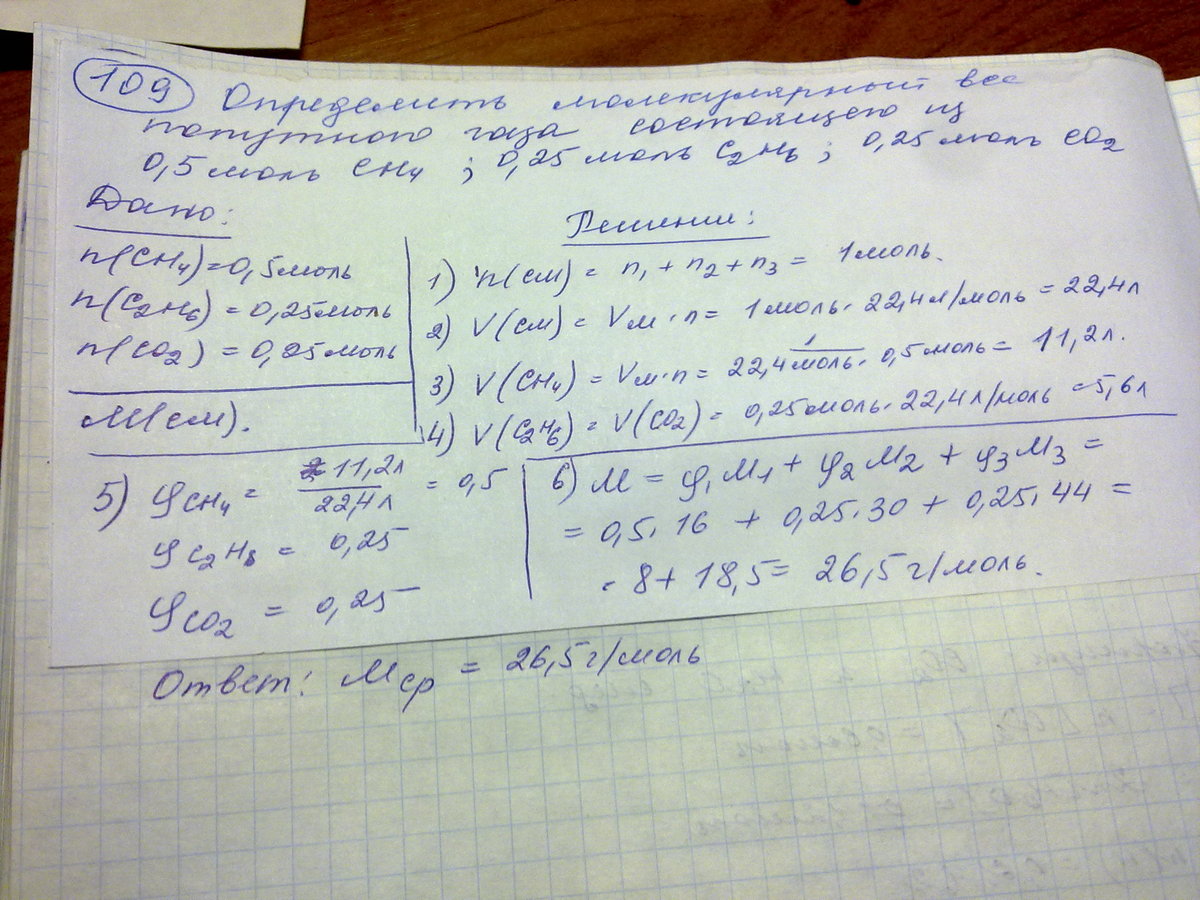 109 Определить молекулярный вес
попутного газа состоящего из
0,5 моль CH4 ; 0,25 моль C2H6 ; 0,25 моль CO2
Дано:
n(CH4)=0,5 моль
n(C2H6) = 0,25 моль
n(CO2) = 0,25 моль
M(см).
Решение:
1) n(см) = n1 + n2 + n3 = 1 моль.
2) V(см) = Vм · n = 1 моль · 22,4 л/моль = 22,4 л
3) V(CH4) = Vм · n = 22,4 л/моль · 0,5 моль = 11,2 л.
4) V(C2H6) = V(CO2) = 0,25 моль · 22,4 л/моль = 5,6 л
5) φCH4 = 11,2 л / 22,4 л = 0,5
φC2H6 = 0,25
φCO2 = 0,25
6) M = φ1M1 + φ2M2 + φ3M3 =
= 0,5 · 16 + 0,25 · 30 + 0,25 · 44 =
= 8 + 18,5 = 26,5 г/моль.
Ответ: Mср = 26,5 г/моль